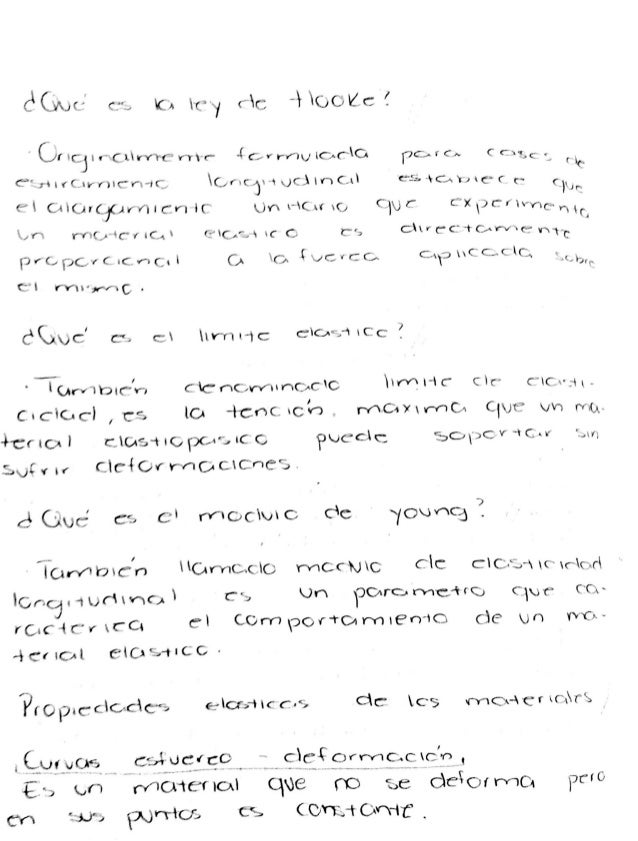 ¿Qué es la ley de Hooke?
· Originalmente formulada para casos de
estiramiento longitudinal establece que
el alargamiento unitario que experimenta
un material elastico es directamente
proporcional a la fuerza aplicada sobre
el mismo.
¿Qué es el limite elastico?
· También denominado limite de elasti-
cidad, es la tención, maxima que un ma-
terial elastopasico puede soportar sin
sufrir deformaciones.
¿Qué es el modulo de young?
· También llamado modulo de elasticidad
longitudinal es un parametro que ca-
racteriza el comportamiento de un ma-
terial elastico.
Propiedades elasticas de los materiales
Curvas esfuerzo - deformación,
Es un material que no se deforma pero
en sus puntos es constante.